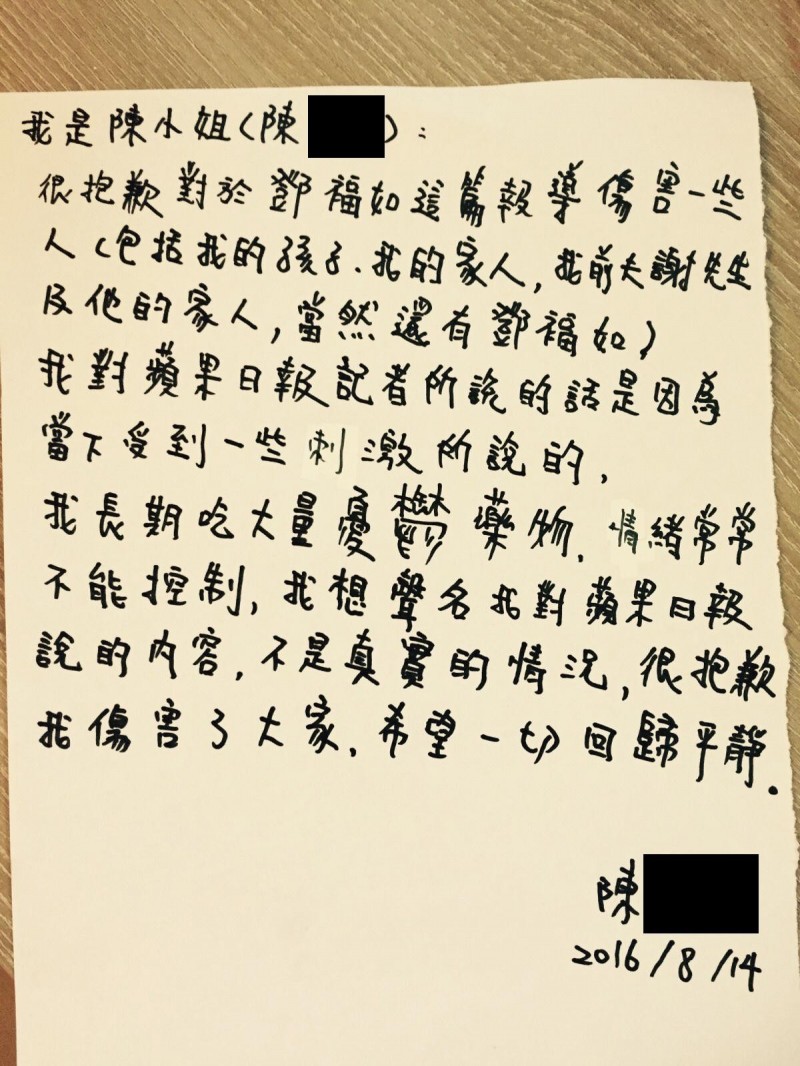 我是陳小姐(陳 ):
很抱歉對於鄧福如這篇報導傷害一些
人(包括我的孩子.我的家人,我前夫謝先生
及他的家人,當然還有鄧福如)
我對蘋果日報記者所說的話是因為
當下受到一些刺激所說的,
我長期吃大量憂鬱藥物,情緒常常
不能控制,我想聲名我對蘋果日報
說的內容,不是真實的情況,很抱歉
我傷害了大家,希望一切回歸平靜.
陳
2016/8/14